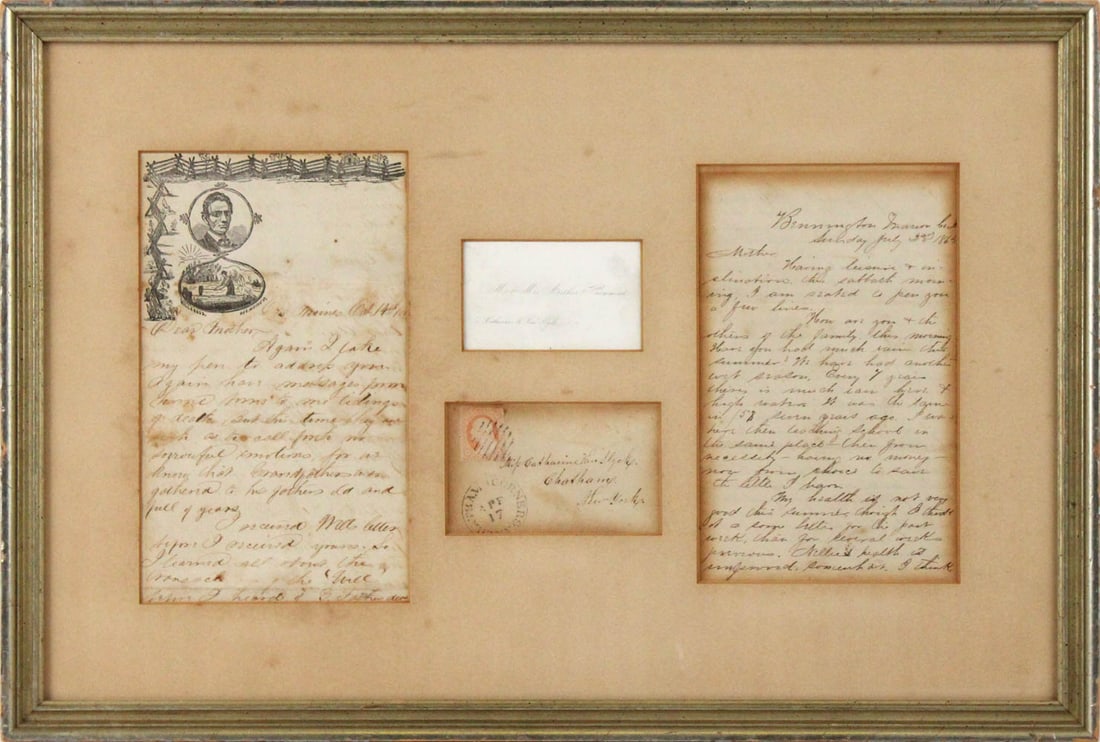 Oct 14th
Dear Mother,
Again I take
my pen to address you.
Again have messages from
home borne to me tidings
of death, but this time they are
such as to call forth no
sorrowful emotions, for we
know that Grandfather was
gathered to his fathers old and
full of years.
I received Will's letter
before I received yours. So
I learned all about the
the Will
before I heard of
Mr & Mrs
Miss Catharine Van Slyck,
Chatham,
New York,
Bennington Marion
Sunday July 2nd 186
Mother,
Having leisure & in-
clination this sabbath morn-
ing, I am seated to pen you
a few lines.
How are you & the
others of the family this morning
Have you had much rain this
summer? We have had another
wet season. Every 7 years
there is much rain here &
high water. It was the same
in 58 seven years ago. I was
here then teaching school in
the same place - then from
necessity - having no money -
now from choice to save
the little I have.
My health is not very
good this summer, though I think
it is some better for the past
week, than for several weeks
previous. Nellie's health is
improved somewhat I think